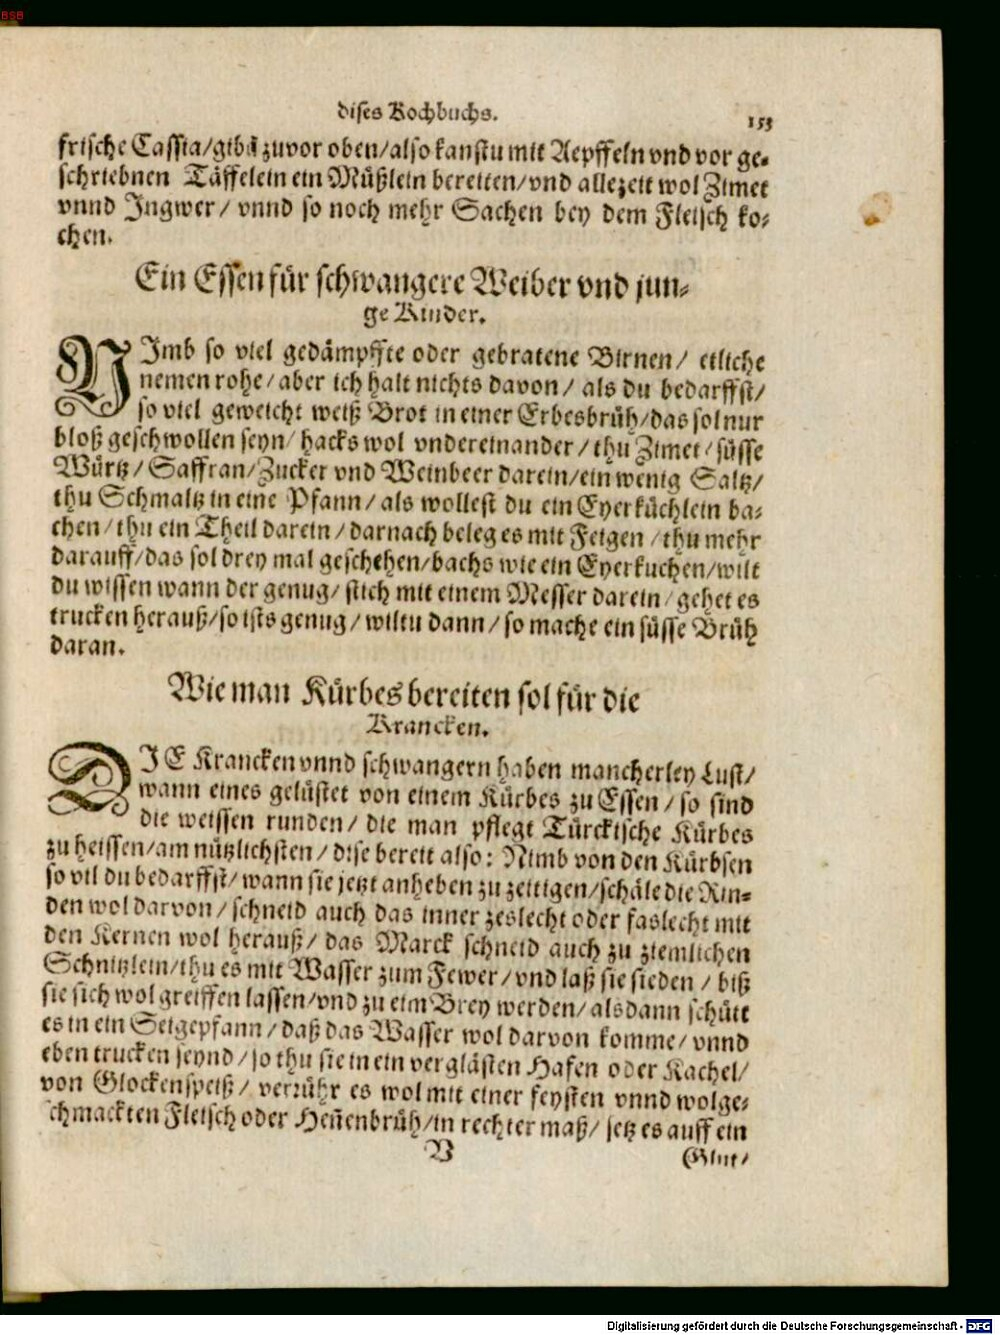 BSB
dises Kochbuchs.
153
frische Cassia/gibs zuvor oben/also kanstu mit Aepffeln vnd vor ge-
schriebnen Täffelein ein Müßlein bereiten/vnd allezeit wol Zimet
vnnd Ingwer/ vnnd so noch mehr Sachen bey dem Fleisch ko-
chen.
Ein Essen für schwangere Weiber vnd jun-
ge Kinder.
NImb so viel gedämpffte oder gebratene Birnen/ etliche
nemen rohe/aber ich halt nichts davon/ als du bedarffst/
so viel geweicht weiß Brot in einer Erbesbrüh/das sol nur
bloß geschwollen seyn/ hacks wol vndereinander/thu Zimet/süsse
Würtz/Saffran/Zucker vnd Weinbeer darein/ein wenig Saltz/
thu Schmaltz in eine Pfann/als wollest du ein Eyerküchlein ba-
chen/thu ein Theil darein/darnach beleg es mit Feigen/thu mehr
darauff/das sol drey mal geschehen/bachs wie ein Eyerkuchen/wilt
du wissen wann der genug/stich mit einem Messer darein/gehet es
trucken herauß/so ists genug/wiltu dann/so mache ein süsse Brüh
daran.
Wie man Kürbes bereiten sol für die
Krancken.
DIE Krancken vnnd schwangern haben mancherley Lust/
wann eines gelüstet von einem Kürbes zu Essen/so sind
die weissen runden/ die man pflegt Türckische Kürbes
zu heissen/am nützlichsten/dise bereit also: Nimb von den Kürbsen
so vil du bedarffst/wann sie jetzt anheben zu zeitigen/schäle die Rin-
den wol darvon/schneid auch das inner zeslecht oder faslecht mit
den Kernen wol herauß/ das Marck schneid auch zu ziemlichen
Schnitzlein/thu es mit Wasser zum Fewer/vnd laß sie sieden/ biß
sie sich wol greiffen lassen/vnd zu eim Brey werden/alsdann schütt
es in ein Seigepfann/daß das Wasser wol darvon komme/vnnd
eben trucken seynd/so thu sie in ein verglästen Hafen oder Kachel/
von Glockenspeiß/ verrühr es wol mit einer feysten vnnd wolge-
schmackten Fleisch oder Heñenbrüh/in rechter maß/ setz es auff ein
V
Glut/
Digitalisierung gefördert durch die Deutsche Forschungsgemeinschaft - DFG